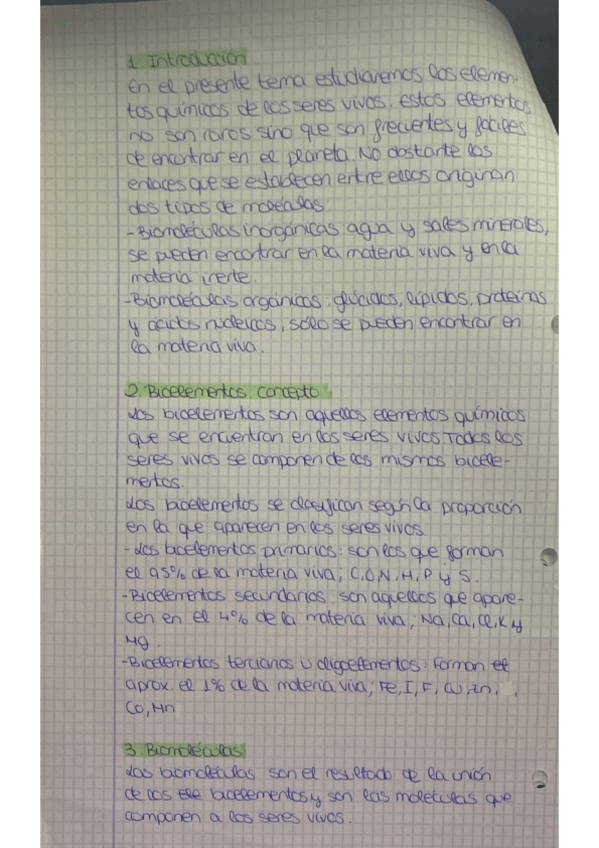 1. Introducción
En el presente tema estudiaremos los elemen-
tos químicos de los seres vivos. estos elementos
no son raros sino que son frecuentes y fáciles
de encontrar en el planeta. No obstante los
enlaces que se establecen entre ellos originan
dos tipos de moléculas:
-Biomoléculas inorgánicas: agua y sales minerales,
se pueden encontrar en la materia viva y en la
materia inerte.
-Biomoléculas orgánicas: glúcidos, lípidos, proteínas
y ácidos nucleicos, sólo se pueden encontrar en
la materia viva.
2. Bioelementos, concepto
Los bioelementos son aquellos elementos químicos
que se encuentran en los seres vivos. Todos los
seres vivos se componen de los mismos bioele-
mentos.
Los bioelementos se clasifican según la proporción
en la que aparecen en los seres vivos
- Los bioelementos primarios: son los que forman
el 95% de la materia viva; C, O, N, H, P y S.
-Bioelementos secundarios: son aquellos que apare-
cen en el 4% de la materia viva; Na, Ca, Cl, K y
Mg.
-Bioelementos terciarios u oligoelementos: Forman el
aprox. el 1% de la materia viva; Fe, I, F, Cu, Zn,
Co, Mn
3. Biomoléculas
Las biomoléculas son el resultado de la unión
de los bioelementos y son las moléculas que
componen a los seres vivos.